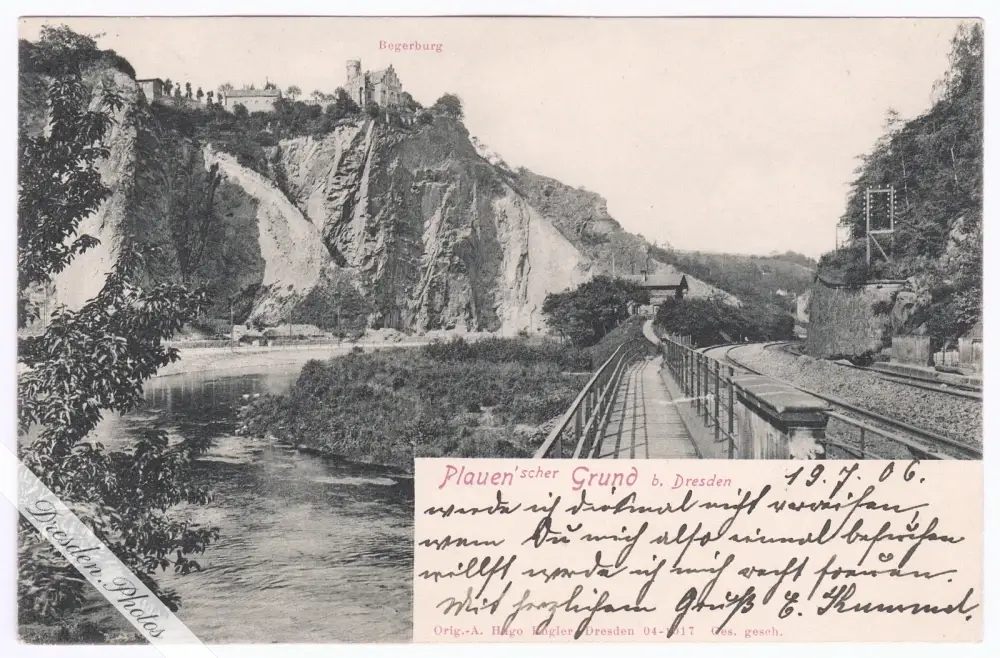 Begerburg
Plauen'scher Grund b. Dresden
19.7.06.
werde ich diesmal nicht verreisen,
wenn Du mich also einmal besuchen
willst werde ich mich recht freuen.
Mit herzlichem Gruß E. Kummel.
Orig.-A. Hugo Engler Dresden 04-1017 Ges. gesch.
Dresden.Photos